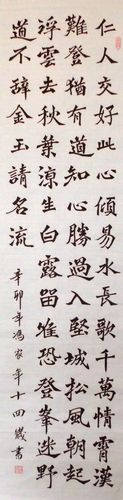 仁人交好此心傾易水長歌千萬情霄漢
難登猶有道知心勝過入堅城松風朝起
浮雲去秋葉涼生白露留唯恐登峯迷野
道不辭金玉請名流
辛卯年馮家年十四歲書